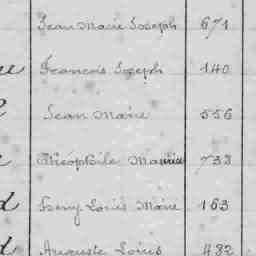 Jean Marie Joseph 671
François Joseph 140
Jean Marie 556
Théophile Maurice 738
Henry Louis Marie 163
Auguste Louis 482